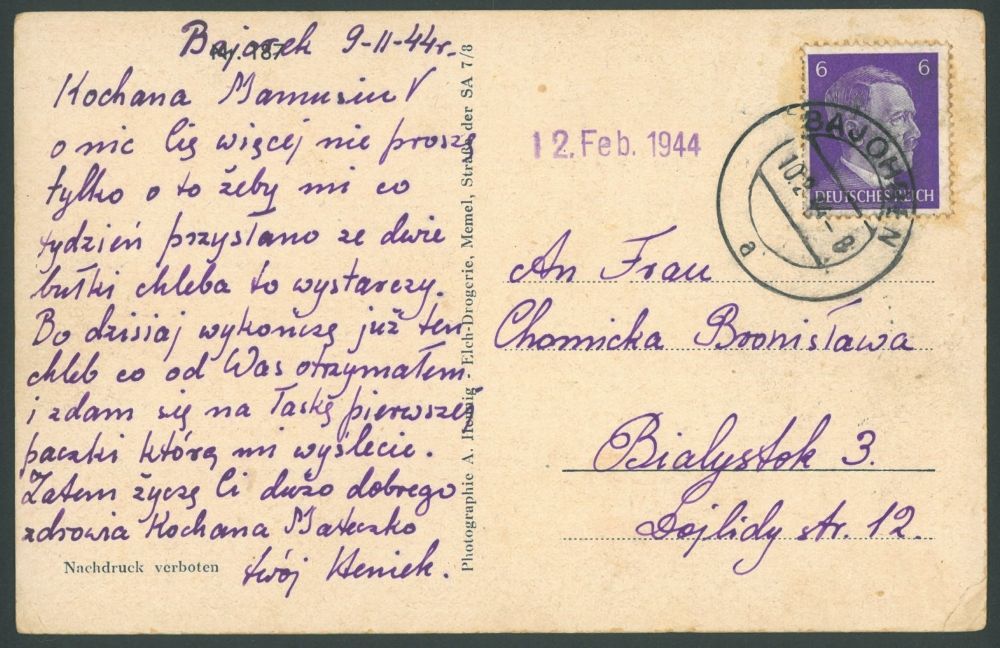 Bajorek 9-II-44r.
Kochana Mamusiu!
o nic Cię więcej nie proszę
tylko o to żeby mi co
tydzień przysłano ze dwie
bułki chleba to wystarczy.
Bo dzisiaj wykończę już ten
chleb co od Was otrzymałem
i zdam się na łaskę pierwszej
paczki którą mi wyślecie.
Zatem życzę Ci dużo dobrego
zdrowia Kochana Mateczko
twój Heniek.
Nachdruck verboten
Photographie A. Hennig - Elch-Drogerie, Memel, Straße der SA 7/8
12. Feb. 1944
6 6
DEUTSCHES REICH
a
An Frau
Chomicka Bronisława
Bialystok 3.
Dojlidy str. 12.